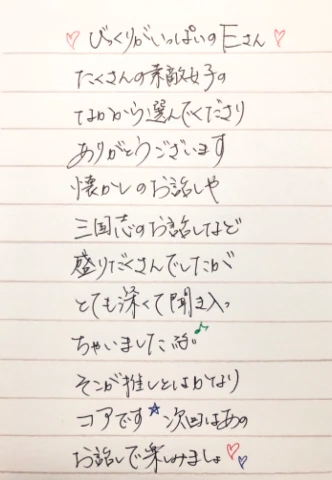 ♡ びっくりがいっぱいのEさん ♡
たくさんの素敵女子の
なかから選んでくださり
ありがとうございます
懐かしのお話しや
三国志のお話しなど
盛りだくさんでしたが
とても深くて聞き入っ
ちゃいました♪
そこが推しとはかなり
コアです☆次回はあの
お話しで楽しみましょ♡♡